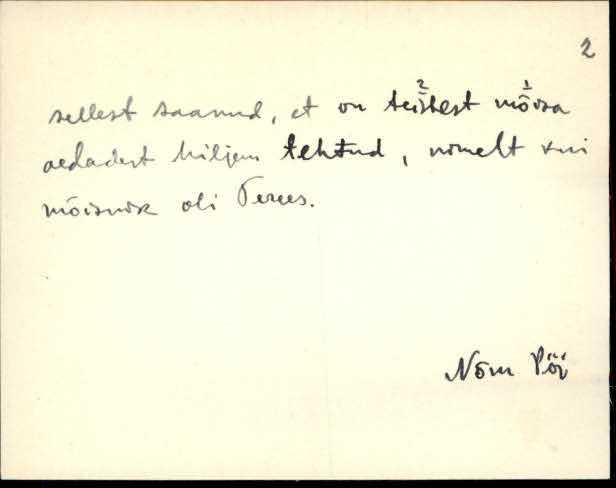 2
sellest saanud, et on teistest mõisa
aedadest hiljem tehtud, nimelt kui
mõisnik oli Peres.
Nõm Pöi